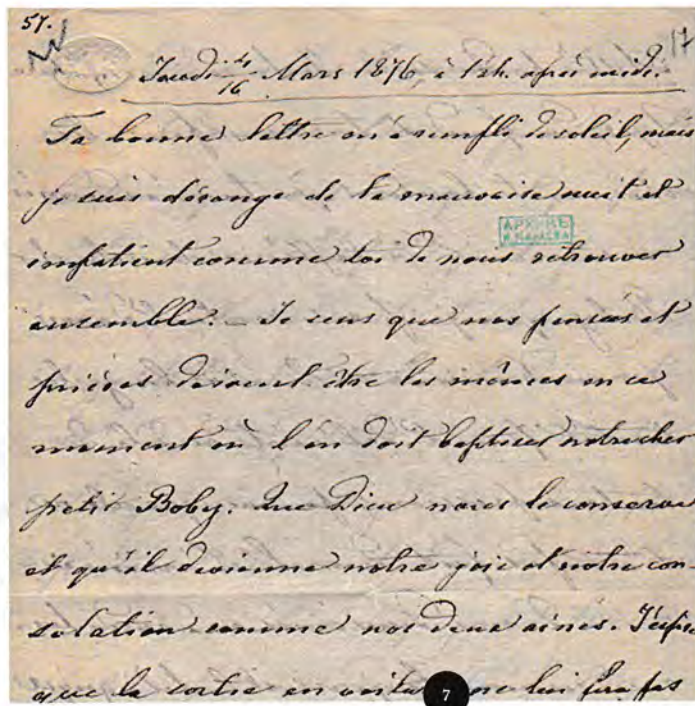 57.
17
Jeudi 4/16 Mars 1876, à 12h. après midi.
Ta bonne lettre m'a rempli de soleil, mais
je suis dérangé de ta mauvaise nuit et
impatient comme toi de nous retrouver
ensemble. – Je sens que nos pensées et
prières doivent être les mêmes en ce
moment où l'on doit baptiser notre cher
petit Boby. Que Dieu nous le conserve
et qu'il devienne notre joie et notre con-
solation comme nos deux aînés. J'espère
que la sortie en voiture ne lui fera pas
7